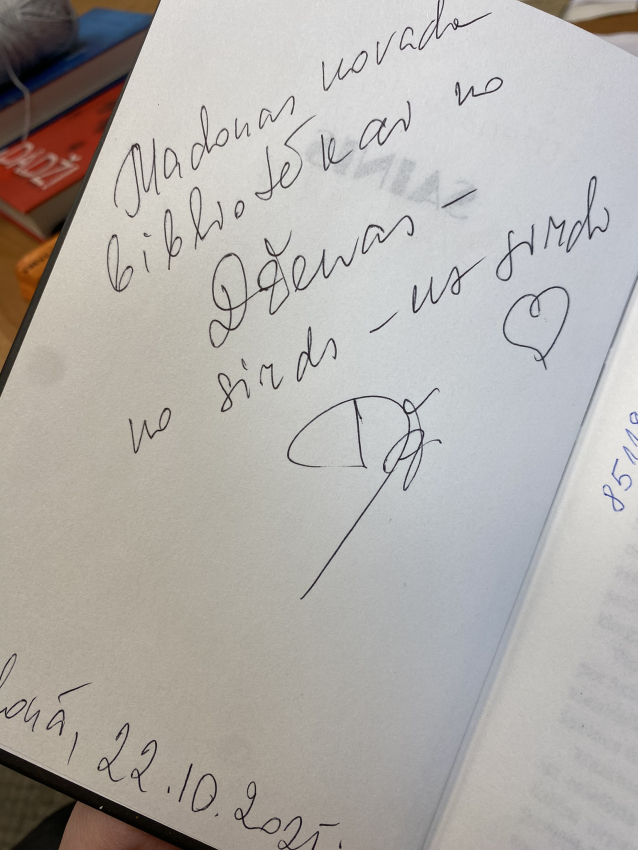 Madonas novada
bibliotēkai no
Dženas –
no sirds – uz sirdi
onā, 22.10.2025.
DADŽI
8511